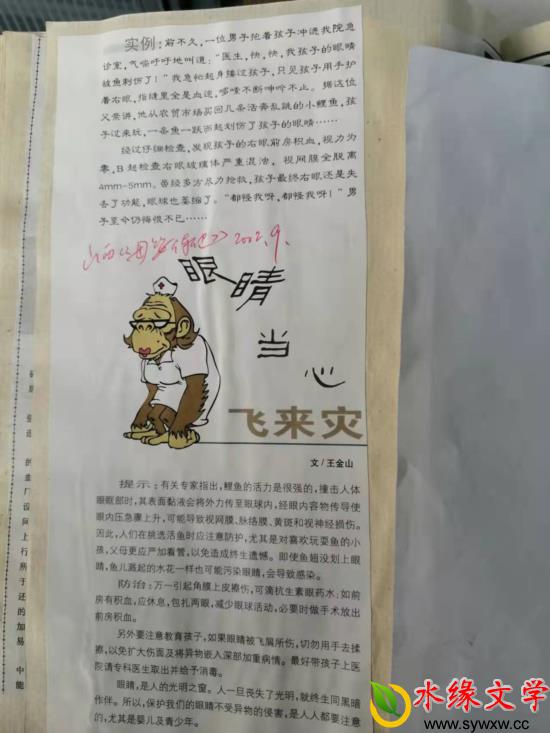 实例：前不久，一位男子抱着孩子冲进我院急
诊室，气喘吁吁地叫道：“医生，快，快，我孩子的眼睛
被鱼刺伤了！”我急忙起身搂过孩子，只见孩子用手护
着右眼，指缝里全是血迹，嘴里不断呻吟不止。据这位
父亲讲，他从农贸市场买回几条活奔乱跳的小鲤鱼，孩
子过来玩，一条鱼一跃而起划伤了孩子的眼睛……
经过仔细检查，发现孩子的右眼前房积血，视力为
零，B超检查右眼玻璃体严重混浊，视网膜全脱离
4mm-5mm。曾经多方尽力抢救，孩子最终右眼还是失
去了功能，眼球也萎缩了。“都怪我呀，都怪我呀！”男
子至今仍悔恨不已……
2002.9.
眼睛
当
心
飞来灾
文/王金山
提示：有关专家指出，鲤鱼的活力是很强的，撞击人体
眼眶部时，其表面黏液会将外力传至眼球内，经眼内容物传导使
眼内压急骤上升，可能导致视网膜、脉络膜、黄斑和视神经损伤。
因此，人们在挑选活鱼时应注意防护，尤其是对喜欢玩耍鱼的小
孩，父母更应严加看管，以免造成终生遗憾。即使鱼翅没划上眼
睛，鱼儿溅起的水花一样也可能污染眼睛，会导致感染。
防治：万一引起角膜上皮擦伤，可滴抗生素眼药水；如前
房有积血，应休息，包扎两眼，减少眼球活动，必要时做手术放出
前房积血。
另外要注意教育孩子，如果眼睛被飞屑所伤，切勿用手去揉
擦，以免扩大伤面及将异物嵌入深部加重病情。最好带孩子上医
院请专科医生取出并给予消毒。
眼睛，是人的光明之窗。人一旦丧失了光明，就终生同黑暗
作伴。所以，保护我们的眼睛不受异物的侵害，是人人都要注意
的，尤其是婴儿及青少年。
水缘文学
www.sywxw.cc